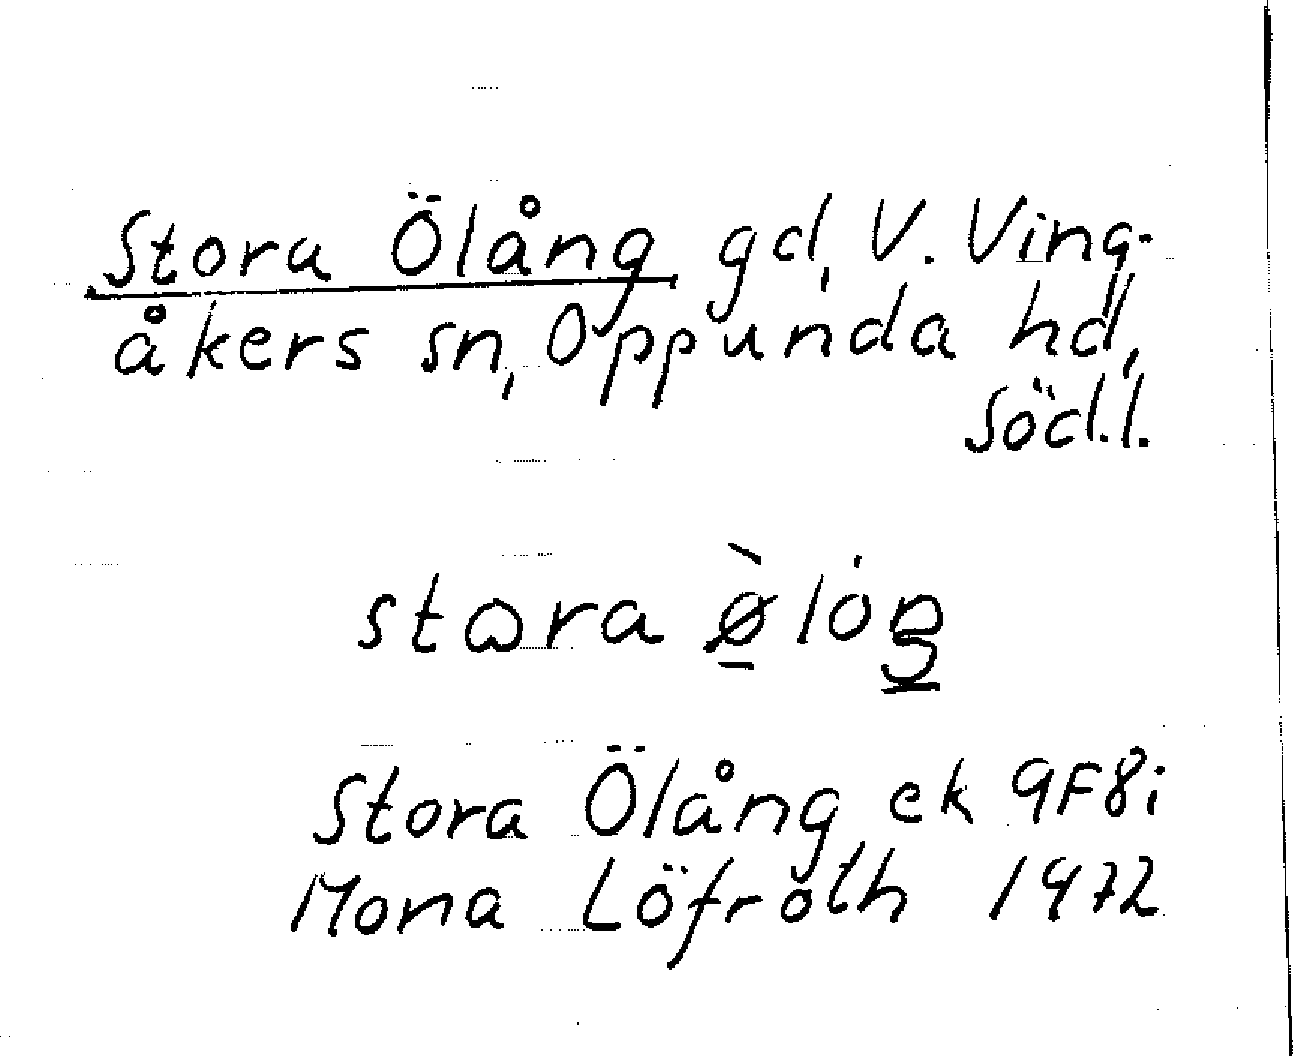 Stora Ölång gd, V. Ving-
åkers sn, Oppunda hd,
Söd.l.
stɷra ø̱̀lȯŋ̱
Stora Ölång ek 9F8i
Mona Löfroth 1972